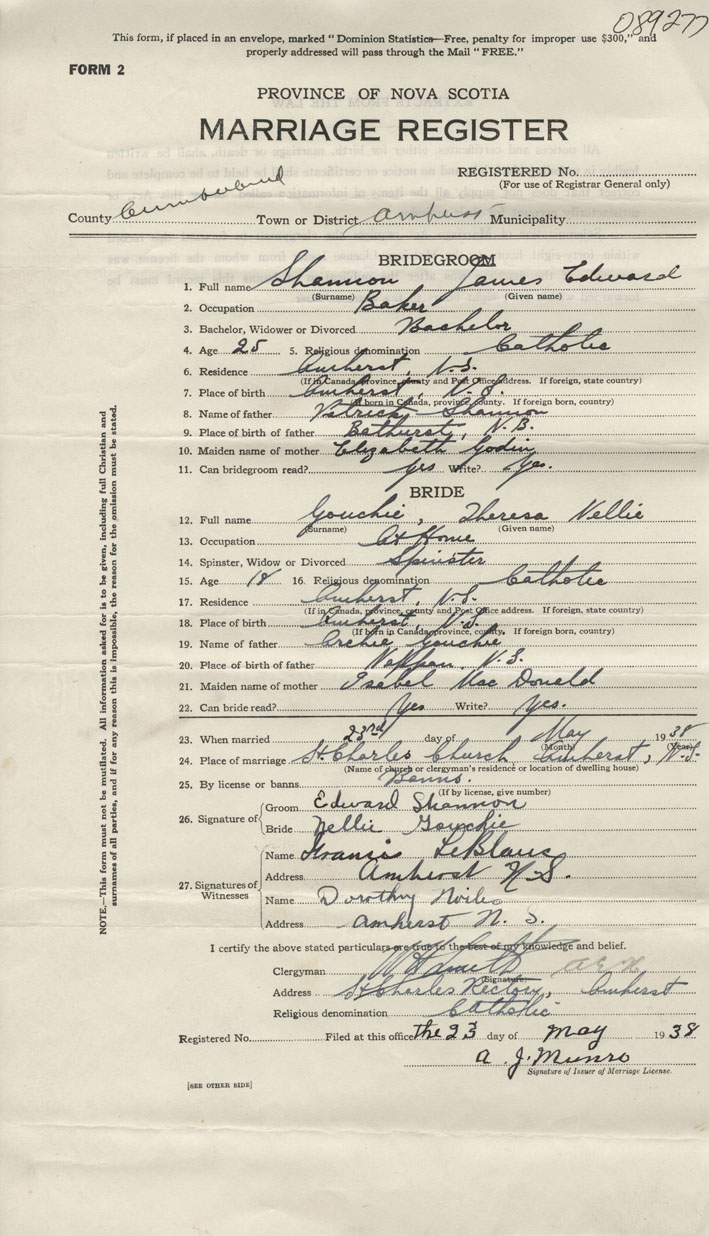 089277
This form, if placed in an envelope, marked "Dominion Statistics—Free, penalty for improper use $300," and
properly addressed will pass through the Mail "FREE."
FORM 2
PROVINCE OF NOVA SCOTIA
MARRIAGE REGISTER
REGISTERED No.
(For use of Registrar General only)
County Cumberland Town or District Amherst Municipality
BRIDEGROOM
1. Full name Shannon James Edward
(Surname) (Given name)
2. Occupation Baker
3. Bachelor, Widower or Divorced Bachelor
4. Age 25 5. Religious denomination Catholic
6. Residence Amherst, N.S.
(If in Canada, province, county and Post Office address. If foreign, state country)
7. Place of birth Amherst, N.S.
(If born in Canada, province, county. If foreign born, country)
8. Name of father Patrick Shannon
9. Place of birth of father Bathurst, N.B.
10. Maiden name of mother Elizabeth Godin
11. Can bridegroom read? yes Write? Yes.
BRIDE
12. Full name Gouchie, Theresa Nellie
(Surname) (Given name)
13. Occupation At Home
14. Spinster, Widow or Divorced Spinster
15. Age 18 16. Religious denomination Catholic
17. Residence Amherst, N.S.
(If in Canada, province, county and Post Office address. If foreign, state country)
18. Place of birth Amherst, N.S.
(If born in Canada, province, county, If foreign born, country)
19. Name of father Archie Gouchie
20. Place of birth of father Nappan, N.S.
21. Maiden name of mother Isabel Mac Donald
22. Can bride read? Yes Write? Yes.
23. When married 23rd day of May 1938
(Month) (Year)
24. Place of marriage St. Charles Church Amherst, N.S.
(Name of church or clergyman's residence or location of dwelling house)
25. By license or banns Banns.
(If by license, give number)
26. Signature of Groom Edward Shannon
Bride Nellie Gouchie
27. Signatures of Witnesses
Name Francis LeBlanc
Address Amherst N.S.
Name Dorothy
Address Amherst N. S.
I certify the above stated particulars are true to the best of my knowledge and belief.
Clergyman
(Signature)
Address St Charles Rectory, Amherst
Religious denomination Catholic
Registered No. Filed at this office the 23 day of May 1938
A. J. Munro
Signature of Issuer of Marriage License.
[SEE OTHER SIDE]
NOTE.—This form must not be mutilated. All information asked for is to be given, including full Christian and
surnames of all parties, and if for any reason this is impossible, the reason for the omission must be stated.